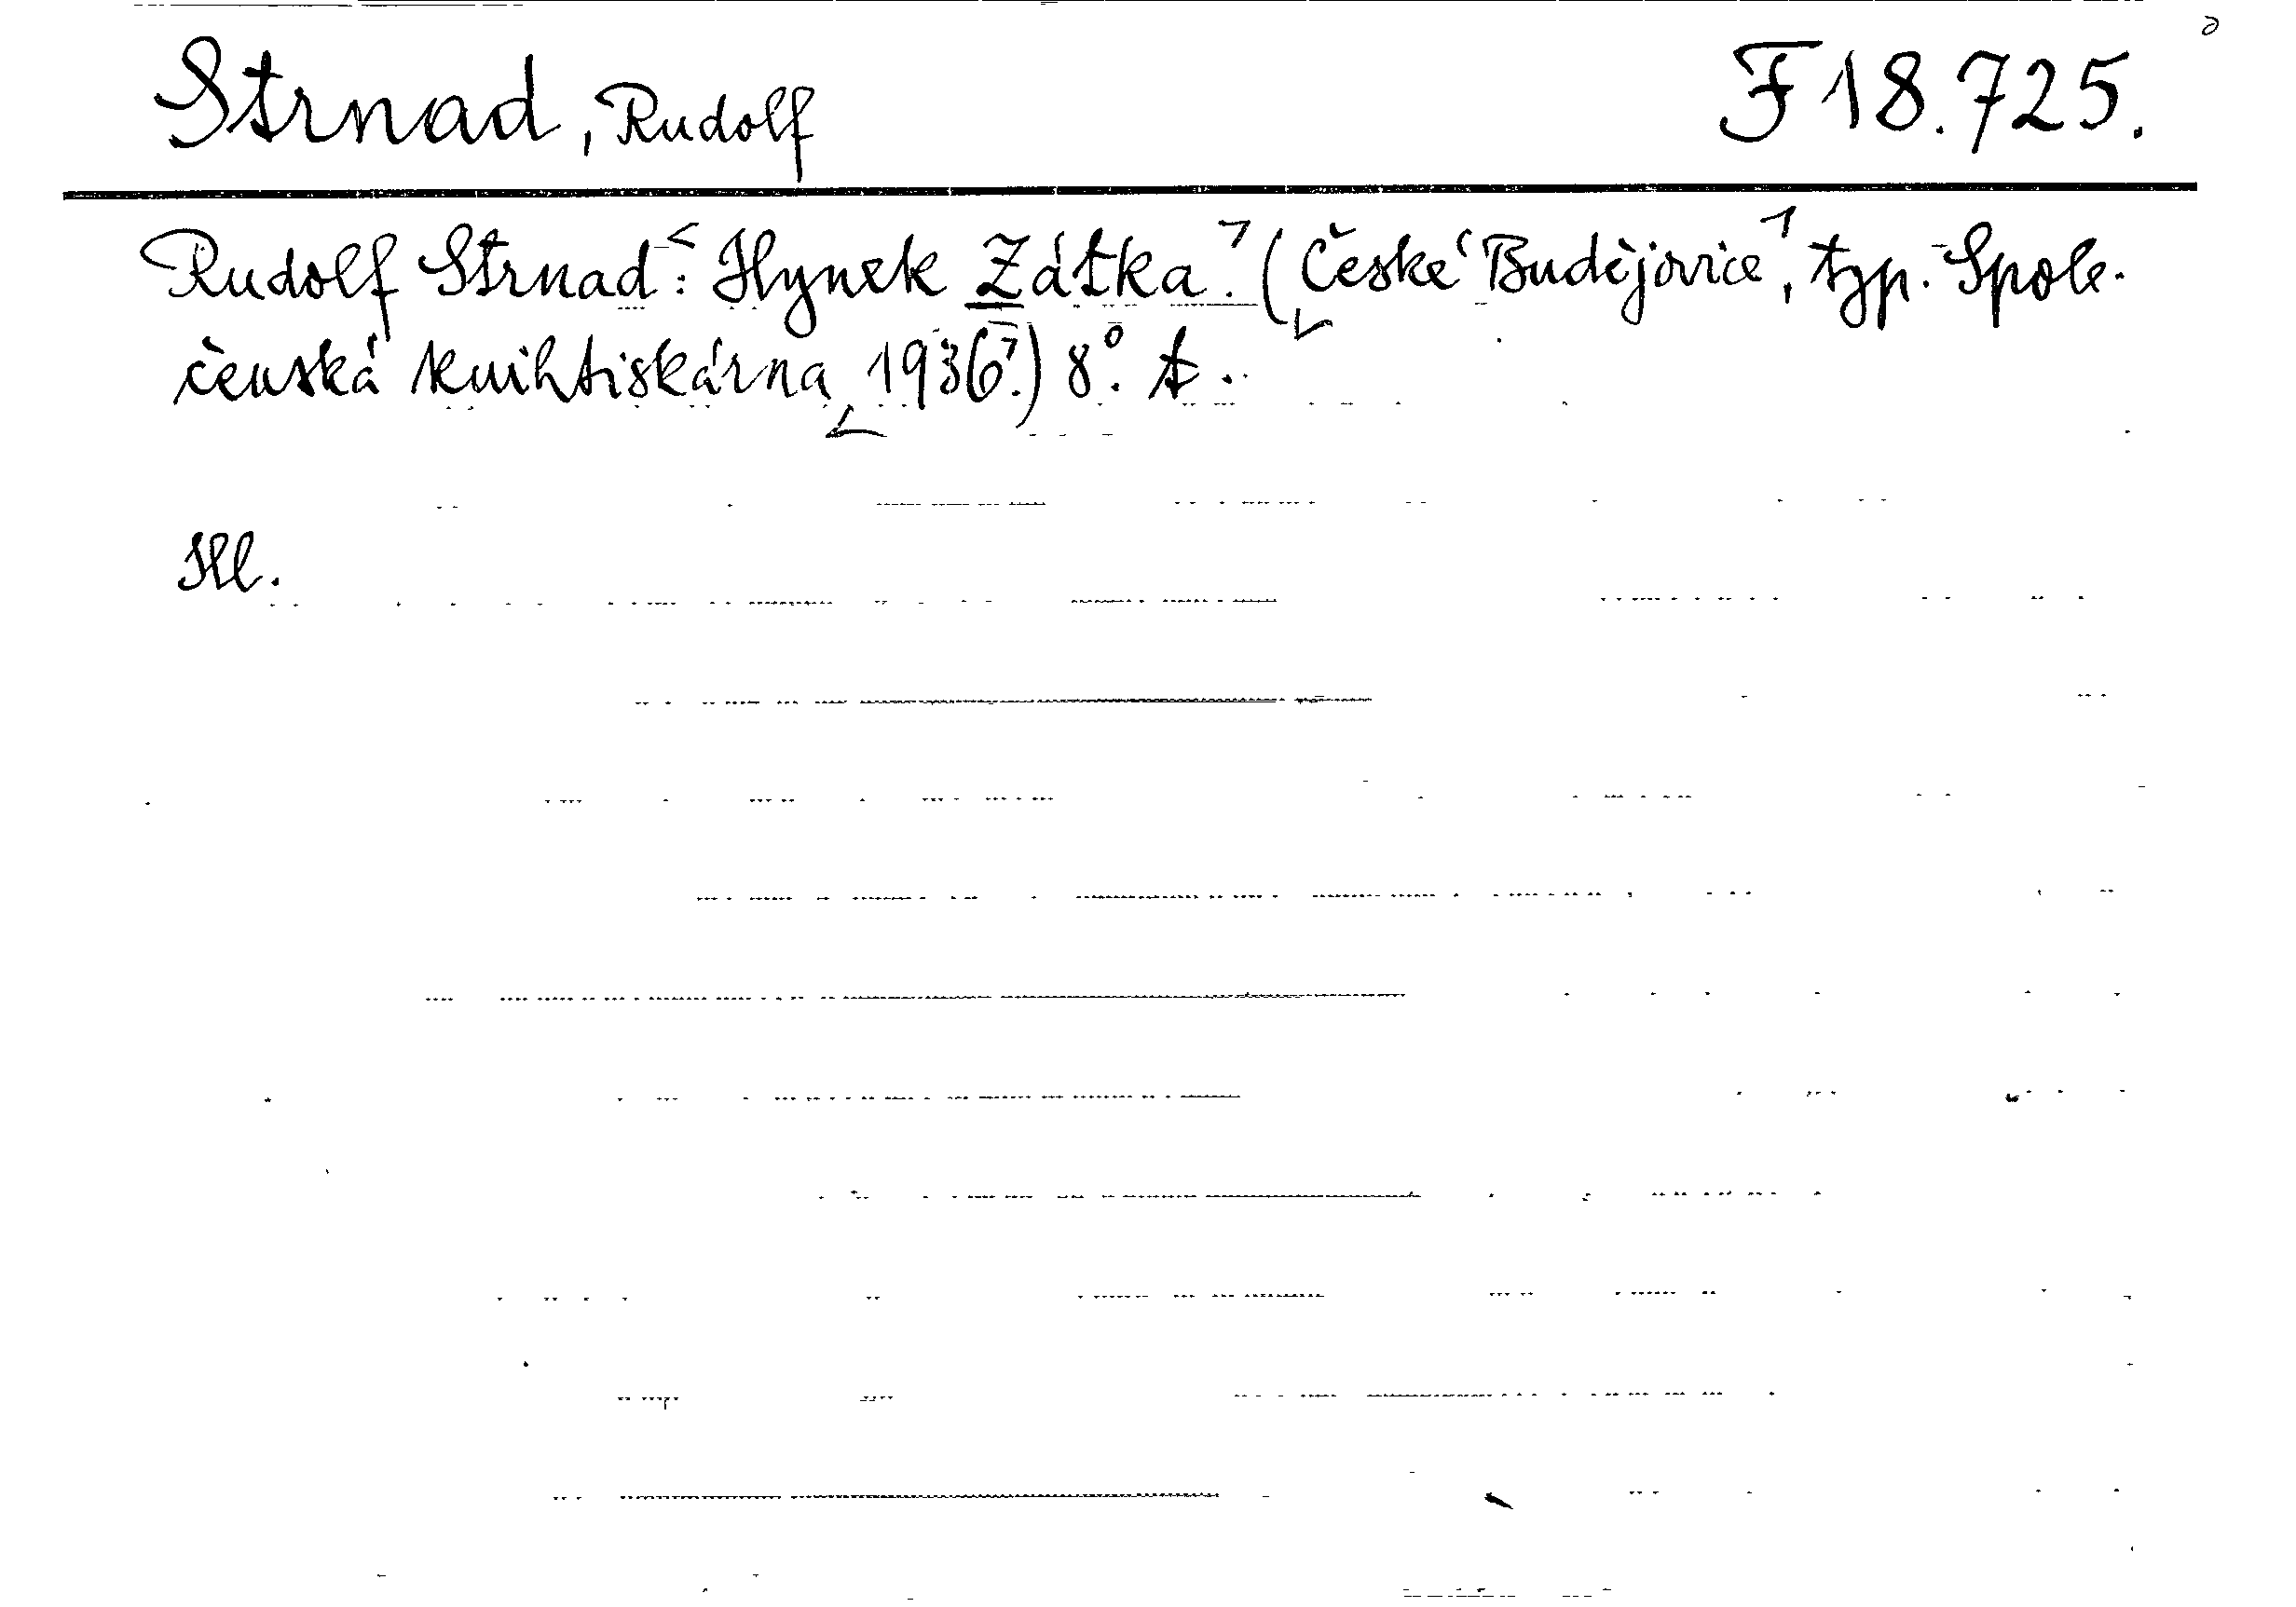 Strnad, Rudolf F 18.725.
Rudolf Strnad: Hynek Zátka. (České Budějovice, typ. Spole-
čenská knihtiskárna 1936.) 8°. A.
Hl.